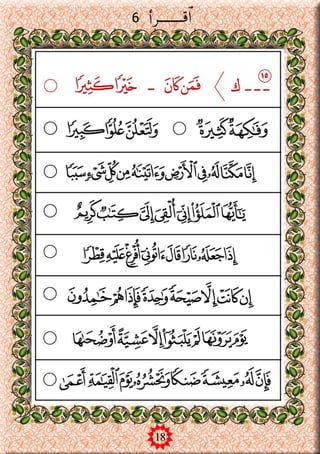 ٱقــــرأ 6
١٥
--- ك 〈 فَمَن كَانَ - خَيْرًا كَثِيرًا ○
وَفَٰكِهَةٍ كَثِيرَةٍ ○ وَلَتَعْلُنَّ عُلُوًّا كَبِيرًا ○
إِنَّا مَكَّنَّا لَهُۥ فِى ٱلْأَرْضِ وَءَاتَيْنَٰهُ مِن كُلِّ شَىْءٍ سَبَبًا ○
يَٰٓأَيُّهَا ٱلْمَلَؤُا۟ إِنِّىٓ أُلْقِىَ إِلَىَّ كِتَٰبٌ كَرِيمٌ ○
إِذَا جَعَلَهُۥ نَارًا قَالَ ءَاتُونِىٓ أُفْرِغْ عَلَيْهِ قِطْرًا ○
إِن كَانَتْ إِلَّا صَيْحَةً وَٰحِدَةً فَإِذَا هُمْ خَٰمِدُونَ ○
يَوْمَ يَرَوْنَهَا لَمْ يَلْبَثُوٓا۟ إِلَّا عَشِيَّةً أَوْ ضُحَىٰهَا ○
فَإِنَّ لَهُۥ مَعِيشَةً ضَنكًا وَنَحْشُرُهُۥ يَوْمَ ٱلْقِيَٰمَةِ أَعْمَىٰ ○
18